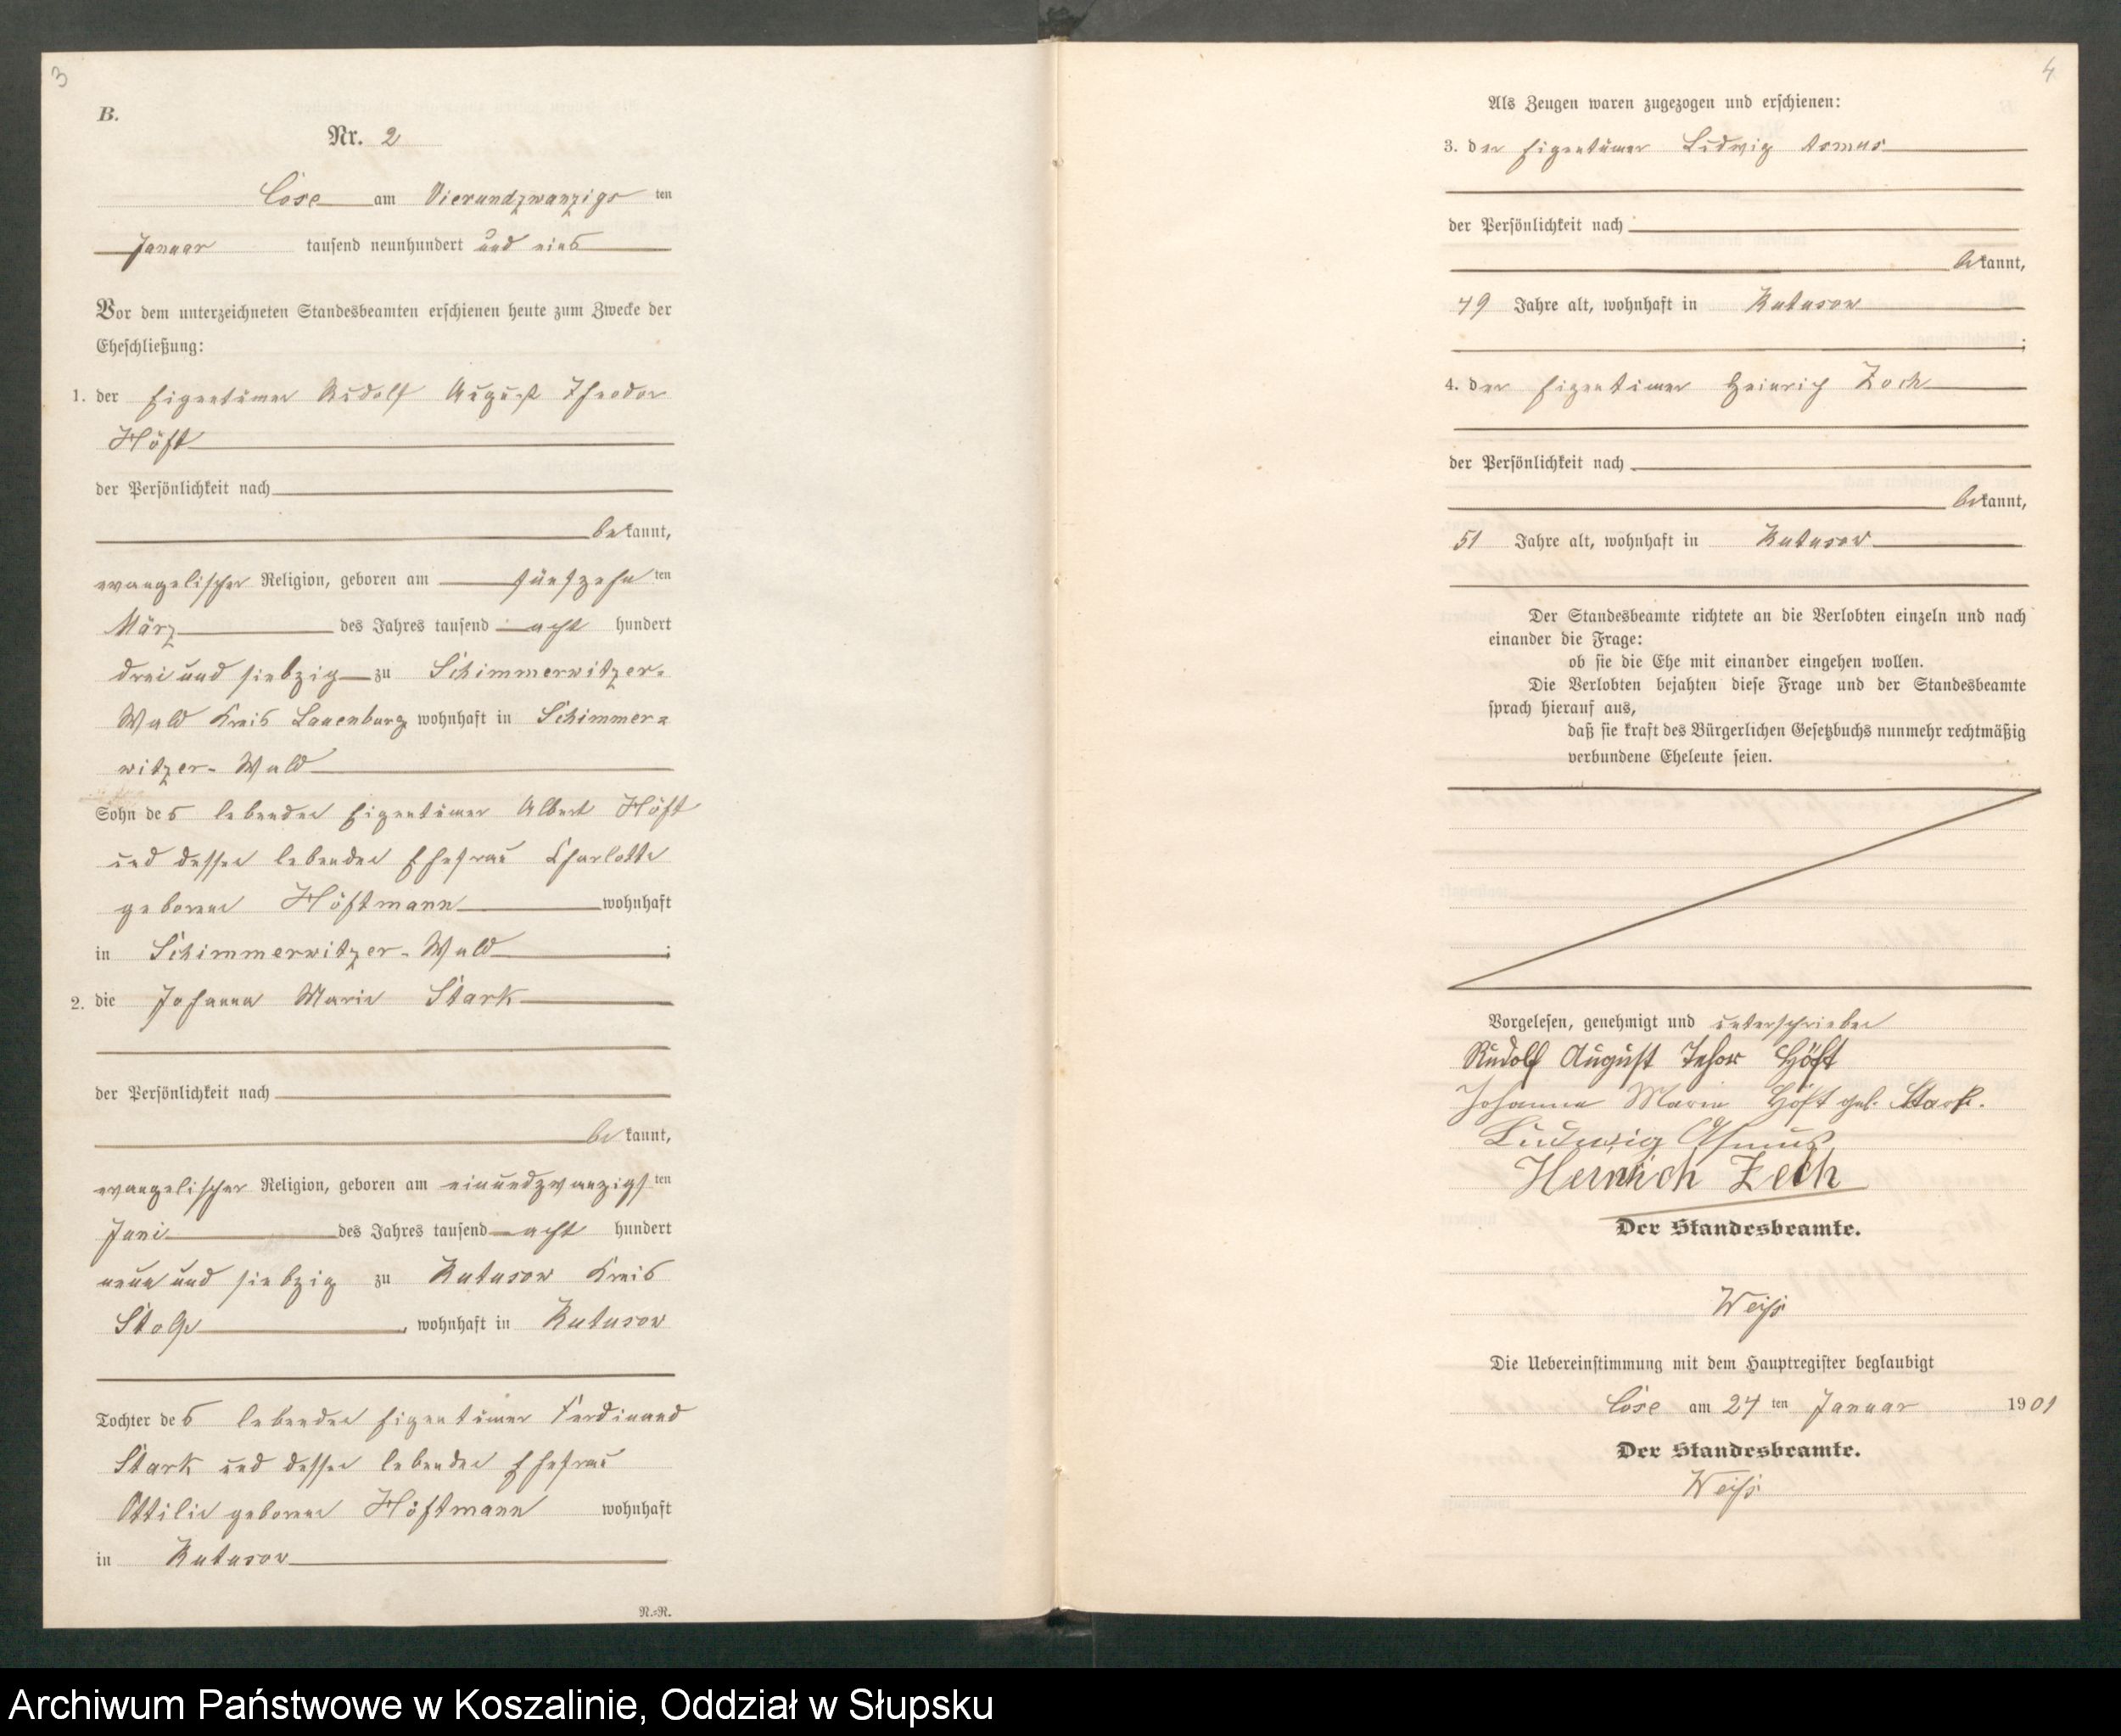 3
B.
Nr. 2
Cose am Vierundzwanzigs ten
Januar tausend neunhundert und eins
Vor dem unterzeichneten Standesbeamten erschienen heute zum Zwecke der
Eheschließung:
1. der Eigentümer Rudolf August Theodor
Höft
der Persönlichkeit nach
be kannt,
evangelischer Religion, geboren am fünfzehn ten
März des Jahres tausend acht hundert
drei und siebzig zu Schimmerwitzer-
Wald Kreis Lauenburg wohnhaft in Schimmer-
witzer-Wald
Sohn des lebenden Eigentümer Albert Höft
und dessen lebenden Ehefrau Charlotte
geborene Höftmann wohnhaft
in Schimmerwitzer-Wald ;
2. die Johanna Marie Stark
der Persönlichkeit nach
be kannt,
evangelischer Religion, geboren am einundzwanzigs ten
Juni des Jahres tausend acht hundert
neun und siebzig zu Kutusow Kreis
Stolp , wohnhaft in Kutusow
Tochter des lebenden Eigentümer Ferdinand
Stark und dessen lebenden Ehefrau
Ottilie geborene Höftmann wohnhaft
in Kutusow
N.=N.
4
Als Zeugen waren zugezogen und erschienen:
3. der Eigentümer Ludwig Asmus
der Persönlichkeit nach
bekannt,
49 Jahre alt, wohnhaft in Kutusow
;
4. der Eigentümer Heinrich Zoch
der Persönlichkeit nach
bekannt,
51 Jahre alt, wohnhaft in Kutusow
Der Standesbeamte richtete an die Verlobten einzeln und nach
einander die Frage:
ob sie die Ehe mit einander eingehen wollen.
Die Verlobten bejahten diese Frage und der Standesbeamte
sprach hierauf aus,
daß sie kraft des Bürgerlichen Gesetzbuchs nunmehr rechtmäßig
verbundene Eheleute seien.
Vorgelesen, genehmigt und unterschrieben
Rudolf August Höft
Johanna Marie Höft geb. Stark.
Ludwig Asmus
Heinrich Zech
Der Standesbeamte.
Weiß
Die Uebereinstimmung mit dem Hauptregister beglaubigt
Cose am 24 ten Januar 1901
Der Standesbeamte.
Weiß
Archiwum Państwowe w Koszalinie, Oddział w Słupsku